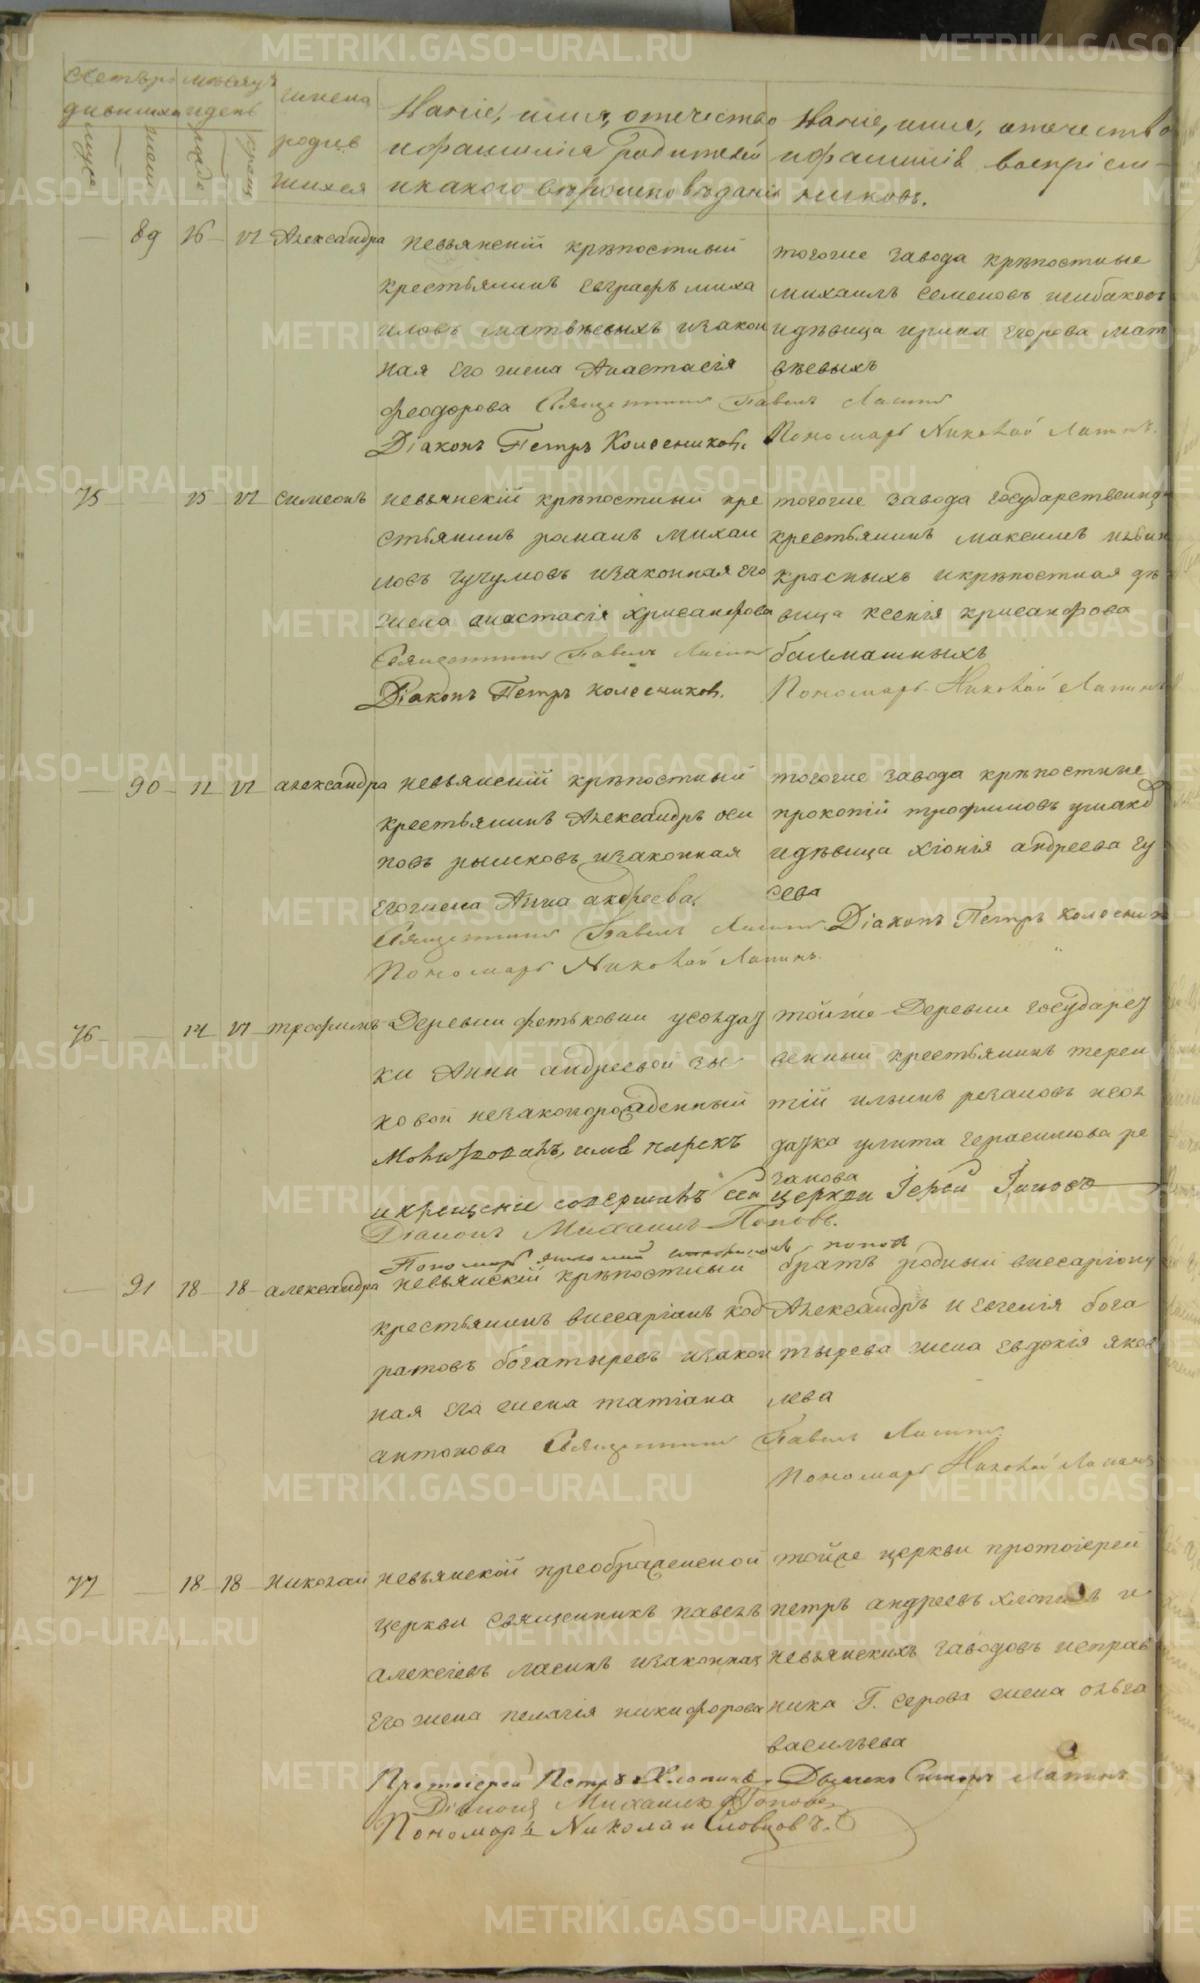 METRIKI.GASO-URAL.RU
Счетъ ро мѣсяцъ
дившихся и день
имена
родив
шихся
Званіе, имя, отечество
и фамилія родителей
и какого вѣроисповѣданія
Званіе, имя, отечество
и фамилія воспріем-
никовъ.
89 16 17 Александра
невьянскій крѣпостный
крестьянинъ евграфъ миха
иловъ матвѣевыхъ и закон
ная его жена Анастасія
феодорова Священникъ Павелъ Ласинъ
Діаконъ Петръ Колесниковъ.
тогоже завода крѣпостные
михаилъ семеновъ шибаковъ
и дѣвица ирина егорова мат
вѣевыхъ
Пономарь Николай Лапинъ.
75 15 17 симеонъ
невьянскій крѣпостный кре
стьянинъ романъ михаи
ловъ чучумовъ и законная его
жена анастасія хрисанфова
Священникъ Павелъ Ласинъ
Діаконъ Петръ Колесниковъ.
тогоже завода государственный
крестьянинъ максимъ
красныхъ и крѣпостная дѣ
вица ксенія крисанфова
балмашныхъ
Пономарь Николай Лапинъ
90 12 17 александра
невьянскій крѣпостный
крестьянинъ Александръ оси
повъ рышковъ и законная
его жена Анна андреева,
Священникъ Павелъ Ласинъ
Пономарь Николай Лапинъ.
тогоже завода крѣпостные
прокопій трофимовъ ушаков
и дѣвица хіонія андреева гу
сева
Діаконъ Петръ Колесников
76 14 17 трофимъ
Деревни фетьковки у солдат
ки Анны андреевой зы
ковой незаконорожденный
Молитвовалъ, имя нарекъ
и крещеніе совершилъ сей церкви Іерей Іаковъ
Діаконъ Михаилъ Поповъ.
Пономарь поповъ
тойже Деревни государст
венный крестьянинъ терен
тій ильинъ резановъ и сол
датка улита герасимова ре
занова
91 18 18 александра
невьянскій крѣпостный
крестьянинъ виссаріонъ код
ратовъ богатыревъ и закон
ная его жена татіана
антонова Священникъ Павелъ Ласинъ
братъ родный виссаріону
Александръ и евгенія бога
тырева жена евдокія яков
лева
Пономарь Николай Лапинъ
77 18 18 николай
невьянской преображенской
церкви священникъ павелъ
алексіевъ ласинъ и законная
его жена пелагія никифорова
тойже церкви протоіерей
петръ андреевъ хлопинъ и
невьянскихъ заводовъ исправ
ника Г. серова жена ольга
васильева
Протоіерей Петръ Хлопинъ. Дьячекъ Лапинъ
Діаконъ Михаилъ Поповъ,
Пономарь Николай Словцовъ.